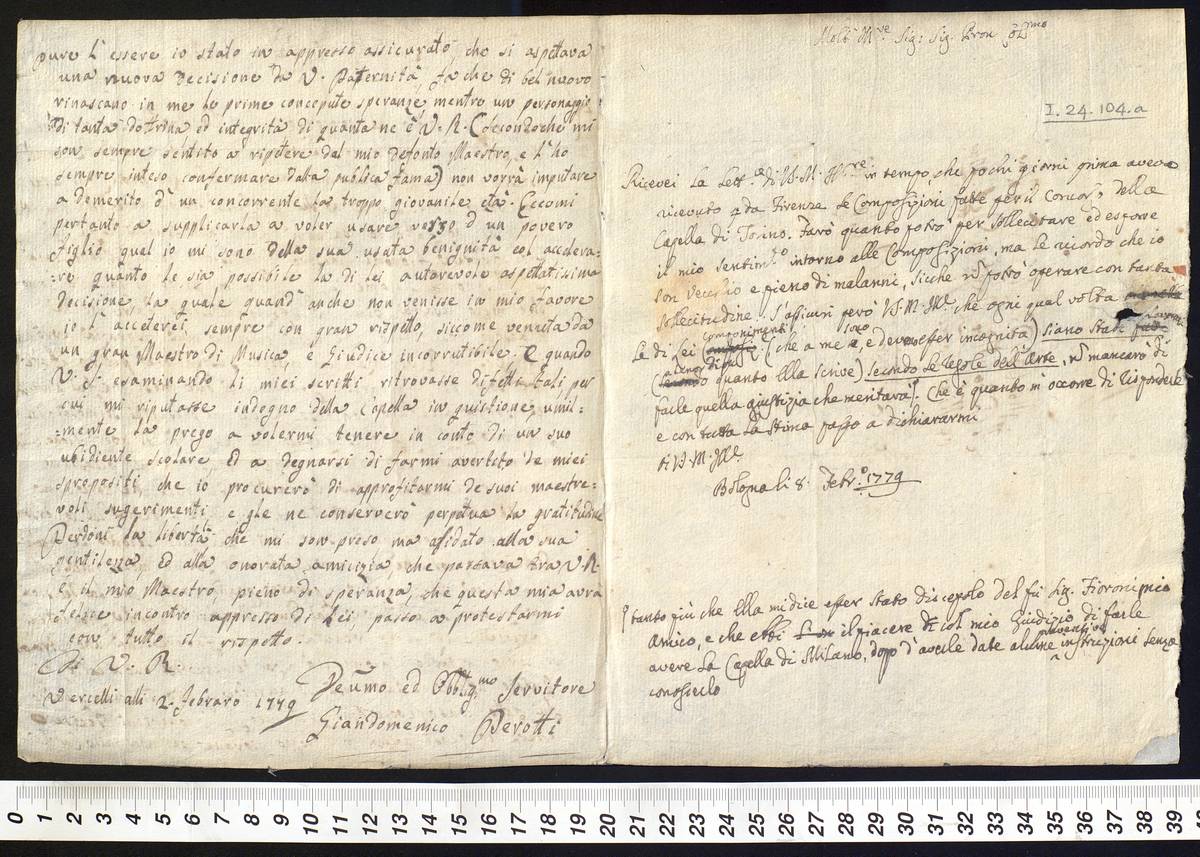 pure l'essere io stato in appresso assicurato, che si aspettava
una nuova decisione da V. Paternità, fa che di bel nuovo
rinascano in me le prime concepute speranze, mentre un personaggio
di tanta dotrina ed integrità di quanta ne è V. R. (secondoche mi
son sempre sentito a ripetere dal mio defonto Maestro, e l'ho
sempre inteso confermare dalla publica fama) non vorrà imputare
a demerito d'un concorrente la troppo giovanile età. Eccomi
pertanto a supplicarla a voler usare verso d'un povero
figlio qual io mi sono della sua usata benignità col accelera:
:re quanto le sia possibile la di Lei autorevole aspettatissima
decisione, la quale quand'anche non venisse in mio favore
io l'accetterei sempre con gran rispetto, siccome venuta da
un gran Maestro di Musica, e Giudice incorrutibile. E quando
V. S. esaminando li miei scritti ritrovasse difetti tali per
cui mi riputasse indegno della Capella in quistione, umil:
:mente la prego a volermi tenere in conto di un suo
ubidiente scolare, ed a degnarsi di farmi avertito de miei
spropositi che io procurerò di approfitarmi de suoi maestre:
voli sugerimenti, e gle ne conserverò perpetua la gratitudine
Perdoni la libertà che mi son preso ma afidato alla sua
gentilezza, ed alla onorata amicizia, che passava tra V. R.
e il mio Maestro, pieno di speranza, che questa mia avrà
felice incontro appresso di Lei, passo a protestarmi
con tutto il rispetto.
Di V. R.
Vercelli alli 2. Febraro 1779
Devmo ed Obblgmo Servitore
Giandomenico Perotti
Molt' Ill.re Sig: Sig. Pron
I. 24. 104. a
Ricevei la Lett.a di V. M. Ill.re in tempo, che pochi giorni prima aveva
ricevuto da Firenze le Composizioni fatte per il Concorso della
Capella di Torino. Farò quanto potrò per sollecitare ed esporre
il mio sentim.to intorno alle Composizioni, ma le ricordo che io
son Vecchio e pieno di malanni, sicche non potrò operare con tanta
sollecitudine. S'assicuri però V. M. Ill.e che ogni qual volta
componimenti
le di Lei (che a me sono, e devono esser incogniti) siano stati
quanto Ella scrive) secondo le regole dell'Arte, non mancarò di
farle quella giustizia che meritarà. Che è quanto m'occorre di rispondere
e con tutta la stima passo a dichiararmi
Di V. M. Ill.e
Bologna li 8. Febr.o 1779
tanto più che Ella mi dice esser stato discepolo del fu Sig. Fioroni mio
Amico, e che ebbi il piacere col mio Giudizio di farle
preventive
avere la Capella di Milano, dopo d'averle date alcune instruzioni senza
conoscerlo